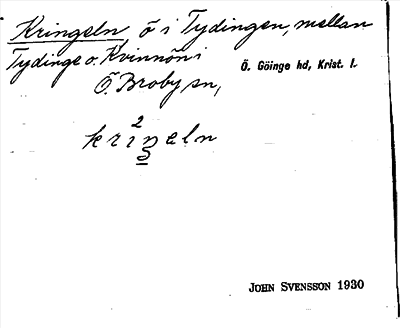 Kringeln ö i Tydingen, mellan
Tydinge o. Kvinnön i
Ö. Broby sn,
Ö. Göinge hd, Krist. l.
2
kriŋeln
JOHN SVENSSON 1930